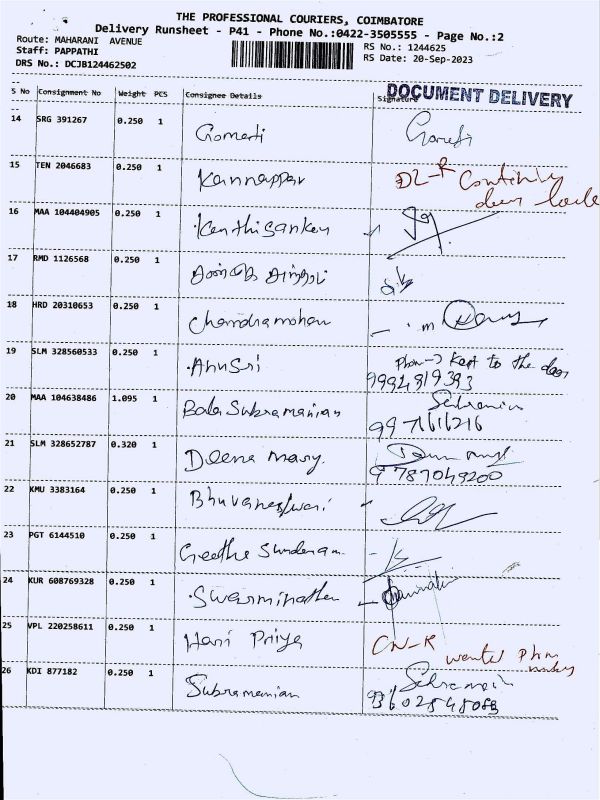 THE PROFESSIONAL COURIERS, COIMBATORE
Delivery Runsheet - P41 - Phone No.:0422-3505555 - Page No.:2
Route: MAHARANI AVENUE
Staff: PAPPATHI
DRS No.: DCJB124462502
RS No.: 1244625
RS Date: 20-Sep-2023
DOCUMENT DELIVERY
S No Consignment No Weight PCS Consignee Details Signature
14 SRG 391267 0.250 1 Gomati
15 TEN 2046683 0.250 1 Kannappan DL-R
16 MAA 104404905 0.250 1
17 RMD 1126568 0.250 1
18 HRD 20310653 0.250 1 Chandramohan
19 SLM 328560533 0.250 1 Anusri Phon-> Kept to the door
9994819393
20 MAA 104638486 1.095 1 Bala Subramanian
9971616216
21 SLM 328652787 0.320 1 Deena mary.
9787049200
22 KMU 3383164 0.250 1 Bhuvaneshwari
23 PGT 6144510 0.250 1 Geetha Sundaram
24 KUR 608769328 0.250 1 Swarminathan
25 VPL 220258611 0.250 1 Hari Priya CN-R
26 KDI 877182 0.250 1 Subramanian